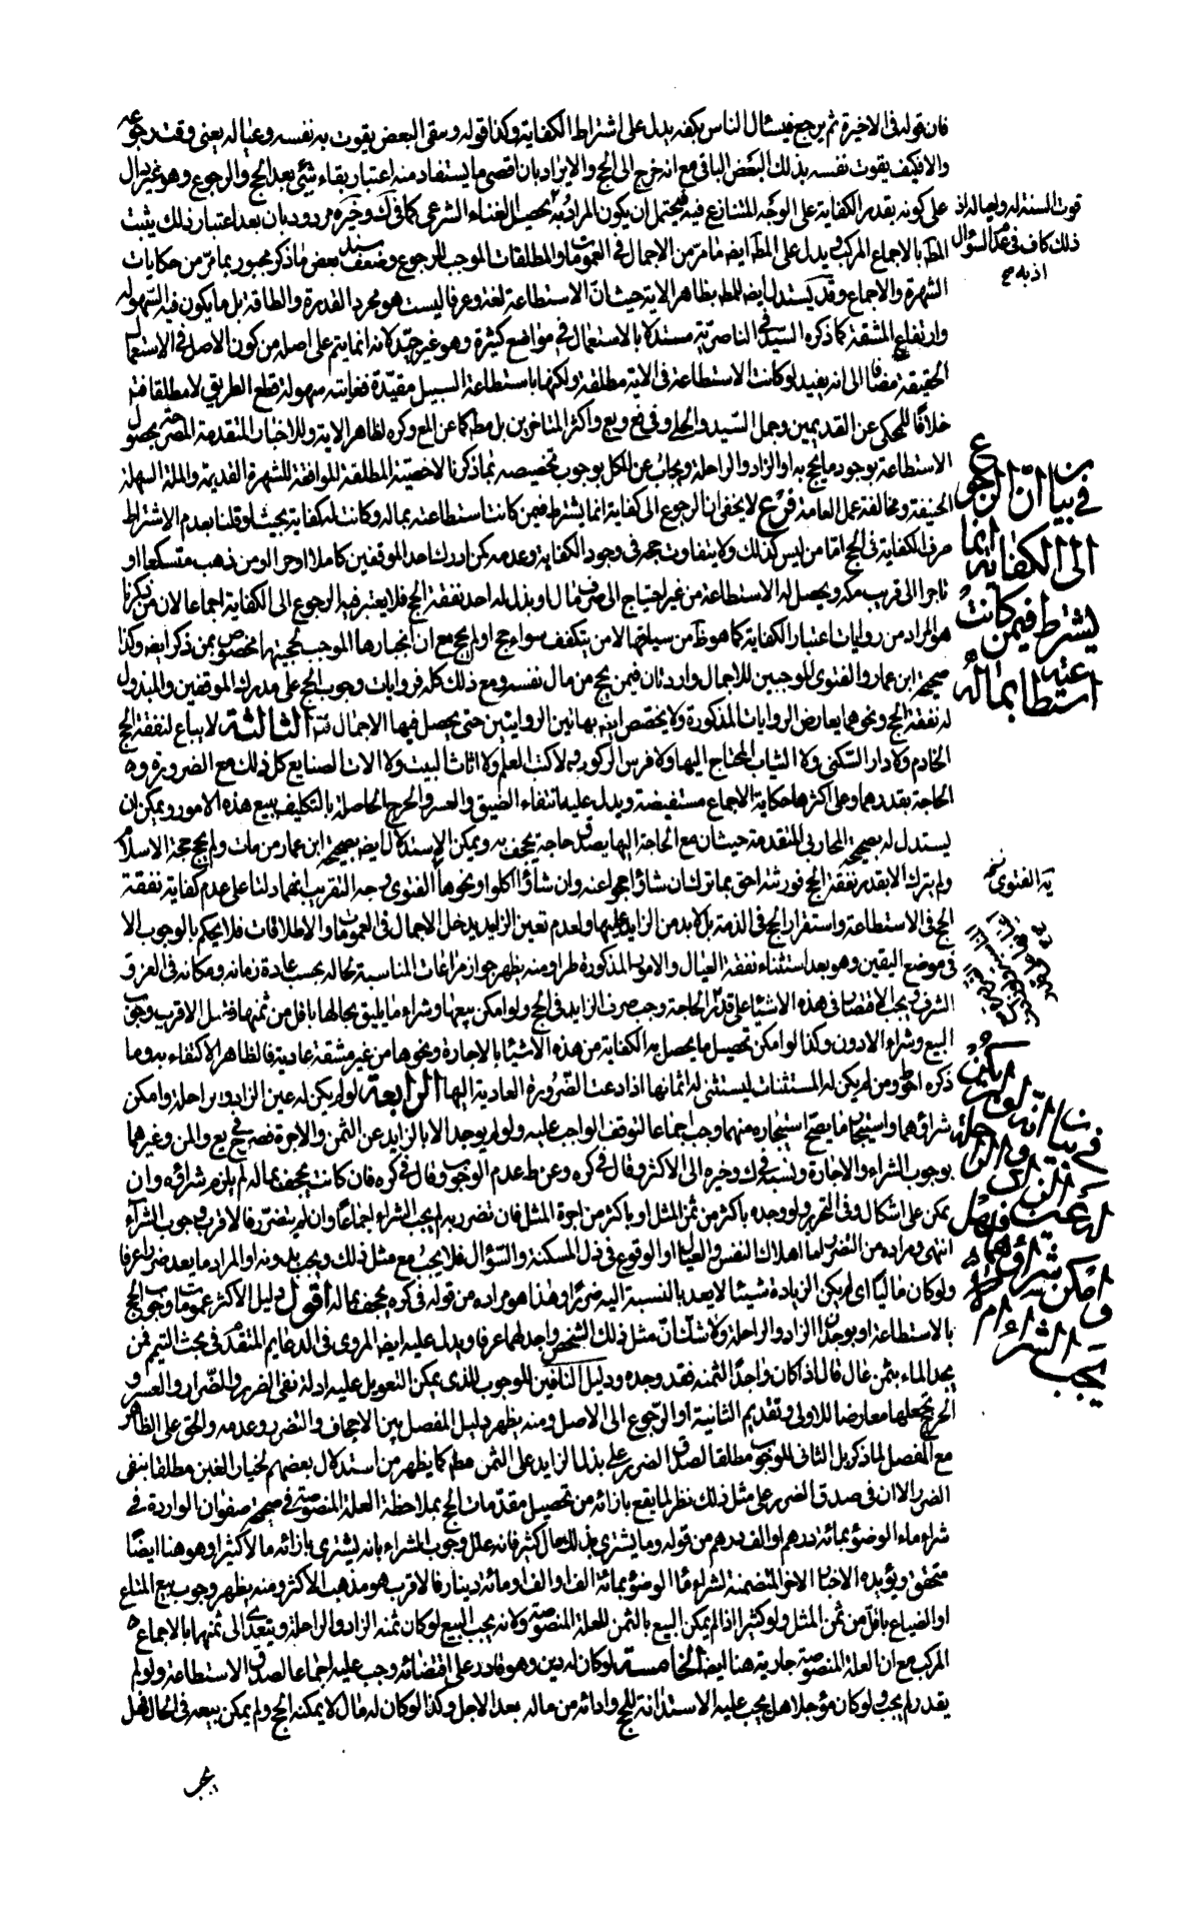 فان قوله فى الاخيرة ثم يرجع فيسئال الناس بكفه يدل على اشتراط الكفاية وكذا قوله ويبقى البعض يقوت به نفسه وعياله يعنى وقت رجوعه
والا فكيف يقوت نفسه بذلك البعض الباقى مع انه خرج الى الحج والايراد بان اقصى ما يستفاد منه اعتبار بقاء شئ بعد الحج والرجوع وهو غير دال
على كونه بقدر الكفاية على الوجه المتنازع فيه فيحتمل ان يكون المراد به تحصيل الغناء الشرعى كما فى ك وخيره مردود بان بعد اعتبار ذلك يثبت
المط بالاجماع المركب ويدل على المط ايضا ما مر من الاجمال فى العمومات والمطلقات الموجب للرجوع وضعف سند بعض ما ذكر مجبور بما مر من حكايات
الشهرة والاجماع وقد يستدل ايضا للمط بظاهر الاية حيث ان الاستطاعة لغة وعرفا ليست هو مجرد القدرة والطاقة بل ما يكون فيه السهولة
وارتفاع المشقة كما ذكره السيد فى الناصرية مستدلا بالاستعمال فى مواضع كثيرة وهو غير جيد لانه انما يتم على اصله من كون الاصل فى الاستعمال
الحقيقة مضافا الى انه يفيد لو كانت الاستطاعة فى الاية مطلقة ولكنها باستطاعة السبيل مقيدة فغايته سهولة قطع الطريق لا مطلقا
خلافا للمحكى عن القديمين وجمل السيد والحلى وفى فع ويع واكثر المتاخرين بل مط كما عن المع وكره لظاهر الاية وللاخبار المتقدمة المصرحة بحصول
الاستطاعة بوجود ما يحج به او الزاد والراحلة ويجاب عن الكل بوجوب تخصيصه بما ذكرنا لاخصيته المطلقة الموافقة للشهرة القديمة والملة السهلة
الحنيفة ومخالفة عمل العامة فرع لا يخفى ان الرجوع الى كفاية انما يشترط فيمن كانت استطاعته بماله وكانت له كفاية بحيث لو قلنا بعدم الاشتراط
صرف الكفاية فى الحج اما من ليس كذلك ولا يتفاوت حجه فى وجود الكفاية وعدمه كمن ادرك احد الموقفين كاملا او حر او من ذهب متسكعا او
تاجرا الى قرب مكه ويحصل له الاستطاعة من غير احتياج الى صرف مال او بذل له احد نفقة الحج فلا يعتبر فيه الرجوع الى الكفاية اجماعا لان من ذكرنا
هو المراد من روايات اعتبار الكفاية كما هو ظ من سياقها لا من يتكفف سواء حج او لم يحج مع ان انجبارها الموجب لحجيتها مخصوص بمن ذكر ايضا وكذا
صحيحة ابن عمار والفتوى الموجبين للاجمال واردتان فيمن يحج من مال نفسه ومع ذلك كله فروايات وجوب الحج على مدرك الموقفين والمبذول
له نفقة الحج ونحوهما يعارض الروايات المذكورة ولا يختص اية بهاتين الروايتين حتى يحصل فيها الاجمال الثالثة لا يباع لنفقة الحج
الخادم ولا دار السكنى ولا الثياب المحتاج اليها ولا فرس الركوب ولا كتب العلم ولا اثاث البيت ولا الات الصنايع كل ذلك مع الضرورة و
الحاجة بقدرهما وعلى اكثرها حكاية الاجماع مستفيضة ويدل عليه انتفاء الضيق والعسر والحرج الحاصلة بالتكليف ببيع هذه الامور ويمكن ان
يستدل له بصحيحة المحاربى المتقدمة حيث ان مع الحاجة اليها يصدق حاجة يجحف به ويمكن الاستدلال ايضا بصحيحة ابن عمار من مات ولم يحج حجة الاسلام
ولم يترك الا بقدر نفقة الحج فورثته احق بما ترك ان شاؤا حجوا عنه وان شاؤا اكلوا ونحوها الفتوى وجه التقريب انهما دلتا على عدم كفاية نفقة
الحج فى الاستطاعة واستقرار الحج فى الذمة بل لا بد من الزايد عليها ولعدم تعين الزايد يدخل الاجمال فى العمومات والاطلاقات فلا يحكم بالوجوب الا
فى موضع اليقين وهو بعد استثناء نفقة العيال والامور المذكورة طرا ومنه يظهر جواز مراعات المناسبة بحاله بحسب عادة زمانه ومكانه فى العز و
الشرف ويجب الاقتصار فى هذه الاشياء على قدر الحاجة وجب صرف الزايد فى الحج ولو امكن بيعها وشراء ما يليق بحاله باقل من ثمنها فقيل الاقرب وجوب
البيع وشراء الادون وكذا لو امكن تحصيل ما يحصل به الكفاية من هذه الاشياء بالاجارة ونحوها من غير مشقة عادية فالظاهر الاكتفاء به وما
ذكره احوط ومن لم يكن له المستثنيات ليستثنى له اثمانها اذا دعت الضرورة العادية اليها الرابعة لو لم يكن له عين الزاد والراحلة وامكن
شراؤهما واستيجار ما يصح استيجاره منهما وجب اجماعا لتوقف الواجب عليه ولو لم يوجد الا بالزايد عن الثمن والاجرة فصح فى يع والمن وغيرهما
بوجوب الشراء والاجارة ونسبه فى ك وخيره الى الاكثر وقال فى كره وعن ط عدم الوجوب وقال فى كره فان كانت يجحف بماله لم يلزم شراؤه وان
تمكن على اشكال وفى التحرير ولو وجده باكثر من ثمن المثل او باكثر من اجرة المثل فان تضرر به لم يجب الشراء اجماعا وان لم يتضرر فالاقرب وجوب الشراء
انتهى ومراده من الضرر اما اهلاك النفس والعيال او الوقوع فى ذل المسكنة والسؤال فلا يجب مع مثل ذلك ويجب بدونه او المراد ما يعد ضررا عرفا
ولو كان ماليا اى لم يكن الزيادة شيئا لا يعد بالنسبة اليه ضررا وهذا هو مراده من قوله فى كره يجحف بماله اقول دليل الاكثر عمومات وجوب الحج
بالاستطاعة او بوجدان الزاد والراحلة ولا شك ان مثل ذلك الشخص واجد لهما عرفا ويدل عليه ايضا المروى فى الدعايم المتقدم فى بحث التيمم فمن
يجد الماء بثمن غال قال اذا كان واجدا لثمنه فقد وجده ودليل النافين للوجوب للذى يمكن التعويل عليه ادلة نفى الضرر والضرار والعسر و
الحرج بجعلها معارضا للاولى وتقديم الثانية او الرجوع الى الاصل ومنه يظهر دليل المفصل بين الاجحاف والتضرر وعدمه والحق على الظاهر
مع المفصل لما ذكر بل الثانى للوجوب مطلقا لصدق الضرر على بذل الزايد على الثمن مط كما يظهر من استدلال بعضهم لخيار الغبن مطلقا بنفى
الضرر الا ان فى صدق الضرر على مثل ذلك نظر لما يقع بازائه من تحصيل مقدمات الحج بملاحظة العلة المنصوصة فى صحيحة صفوان الواردة فى
شراء ماء الوضوء بمائة درهم او الف درهم من قوله وما يشترى بذلك مال كثير فانه علل وجوب الشراء بانه ليشترى بازائه مالا كثيرا وهو هنا ايضا
متحقق ويؤيده الاخبار الاخر المتضمنة لشراء ماء الوضوء بمائة الف والف او مائة دينار فالاقرب هو مذهب الاكثر ومنه يظهر وجوب بيع المتاع
او الضياع باقل من ثمن المثل ولو كثيرا اذا لم يمكن البيع بالثمن للعلة المنصوصة ولانه يجب البيع لو كان ثمنه الزاد والراحلة ويتعدى الى ثمنهما بالاجماع
المركب مع ان العلة المنصوصة جارية هنا ايضا الخامسة لو كان له دين وهو قادر على اقتضائه وجب عليه اجماعا لصدق الاستطاعة ولو لم
يقدر لم يجب ولو كان مؤجلا هل يجب عليه الاستدانة للحج وادائه من ماله بعد الاجل وكذا لو كان له مال لا يمكنه الحج ولم يمكن بيعه فى الحال فهل
يجب
قوت السنة له ولعياله اذ
ذلك كاف فى عدم السؤال
اذ به صح
فى بيان ان الرجوع
الى الكفاية انما
يشترط فيمن كانت
استطاعته بماله
ية الفتوى نسخه
فى بيان انه لو لم يكن
له عين الزاد والراحلة
وامكن شراؤهما فهل
يجب الشراء ام لا